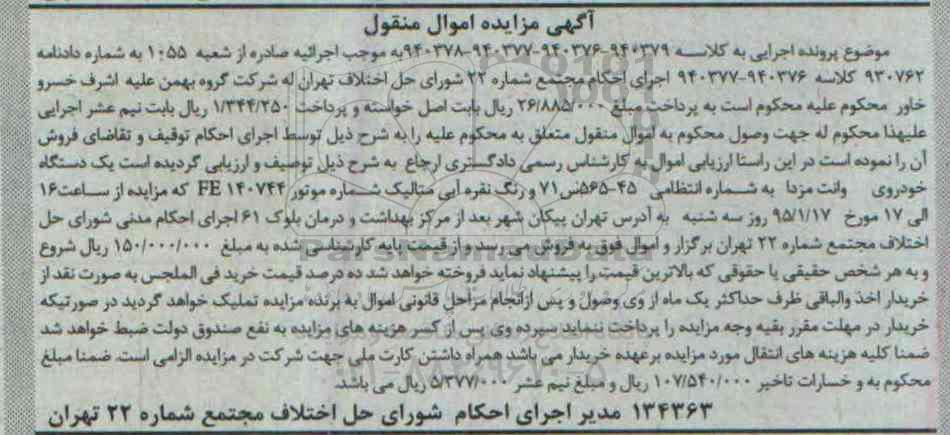 آگهی مزایده اموال منقول
موضوع پرونده اجرایی به کلاسه ۹۴۰۳۷۹-۹۴۰۳۷۶-۹۴۰۳۷۷-۹۴۰۳۷۸به موجب اجرائیه صادره از شعبه ۱۰۵۵ به شماره دادنامه
۹۳۰۷۶۲ کلاسه ۹۴۰۳۷۶-۹۴۰۳۷۷ اجرای احکام مجتمع شماره ۲۲ شورای حل اختلاف تهران له شرکت گروه بهمن علیه اشرف خسرو
خاور محکوم علیه محکوم است به پرداخت مبلغ ۲۶/۸۸۵/۰۰۰ ریال بابت اصل خواسته و پرداخت ۱/۳۴۴/۲۵۰ ریال بابت نیم عشر اجرایی
علیهذا محکوم له جهت وصول محکوم به اموال منقول متعلق به محکوم علیه را به شرح ذیل توسط اجرای احکام توقیف و تقاضای فروش
آن را نموده است در این راستا ارزیابی اموال به کارشناس رسمی دادگستری ارجاع به شرح ذیل توصیف و ارزیابی گردیده است یک دستگاه
خودروی وانت مزدا به شماره انتظامی ۴۵-۵۶۵س۷۱ و رنگ نقره آبی متالیک شماره موتور FE ۱۴۰۷۴۴ که مزایده از ساعت۱۶
الی ۱۷ مورخ ۹۵/۱/۱۷ روز سه شنبه به آدرس تهران پیکان شهر بعد از مرکز بهداشت و درمان بلوک ۶۱ اجرای احکام مدنی شورای حل
اختلاف مجتمع شماره ۲۲ تهران برگزار و اموال فوق به فروش می رسد و از قیمت پایه کارشناسی شده به مبلغ ۱۵۰/۰۰۰/۰۰۰ ریال شروع
و به هر شخص حقیقی یا حقوقی که بالاترین قیمت را پیشنهاد نماید فروخته خواهد شد ده درصد قیمت خرید فی الملجس به صورت نقد از
خریدار اخذ والباقی ظرف حداکثر یک ماه از وی وصول و پس ازانجام مراحل قانونی اموال به برنده مزایده تملیک خواهد گردید در صورتیکه
خریدار در مهلت مقرر بقیه وجه مزایده را پرداخت ننماید سپرده وی پس از کسر هزینه های مزایده به نفع صندوق دولت ضبط خواهد شد
ضمنا کلیه هزینه های انتقال مورد مزایده برعهده خریدار می باشد همراه داشتن کارت ملی جهت شرکت در مزایده الزامی است. ضمنا مبلغ
محکوم به و خسارات تاخیر ۱۰۷/۵۴۰/۰۰۰ ریال و مبلغ نیم عشر ۵/۳۷۷/۰۰۰ ریال می باشد.
۱۳۴۳۶۳ مدیر اجرای احکام شورای حل اختلاف مجتمع شماره ۲۲ تهران